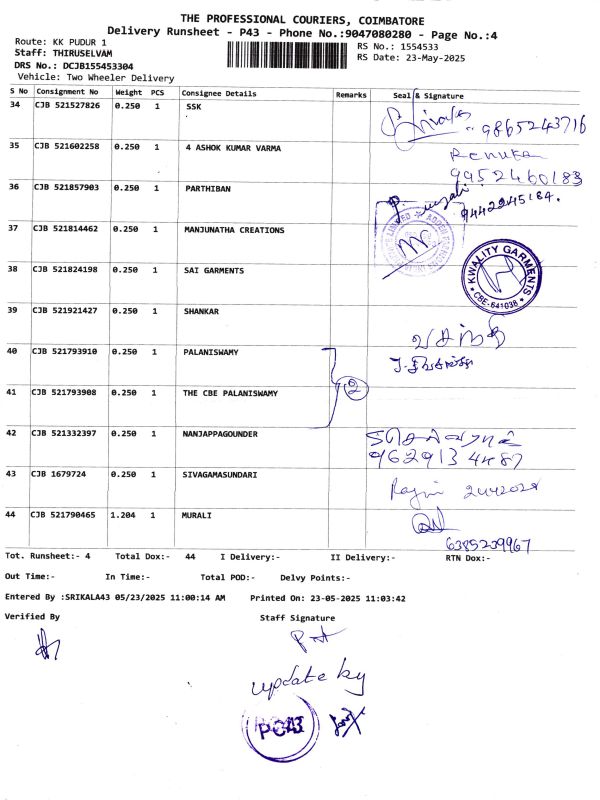 THE PROFESSIONAL COURIERS, COIMBATORE
Delivery Runsheet - P43 - Phone No.:9047080280 - Page No.:4
Route: KK PUDUR 1
RS No.: 1554533
Staff: THIRUSELVAM
RS Date: 23-May-2025
DRS No.: DCJB155453304
Vehicle: Two Wheeler Delivery
S No Consignment No Weight PCS Consignee Details Remarks Seal & Signature
34 CJB 521527826 0.250 1 SSK
9865243716
35 CJB 521602258 0.250 1 4 ASHOK KUMAR VARMA
Renuka
9952460183
36 CJB 521857903 0.250 1 PARTHIBAN
9442245184.
37 CJB 521814462 0.250 1 MANJUNATHA CREATIONS
38 CJB 521824198 0.250 1 SAI GARMENTS
KWALITY GARMENTS
CBE-641038
39 CJB 521921427 0.250 1 SHANKAR
40 CJB 521793910 0.250 1 PALANISWAMY
2
41 CJB 521793908 0.250 1 THE CBE PALANISWAMY
42 CJB 521332397 0.250 1 NANJAPPAGOUNDER
9629134487
43 CJB 1679724 0.250 1 SIVAGAMASUNDARI
44 CJB 521790465 1.204 1 MURALI
6385239967
Tot. Runsheet:- 4 Total Dox:- 44 I Delivery:- II Delivery:- RTN Dox:-
Out Time:- In Time:- Total POD:- Delvy Points:-
Entered By :SRIKALA43 05/23/2025 11:00:14 AM Printed On: 23-05-2025 11:03:42
Verified By Staff Signature
update by